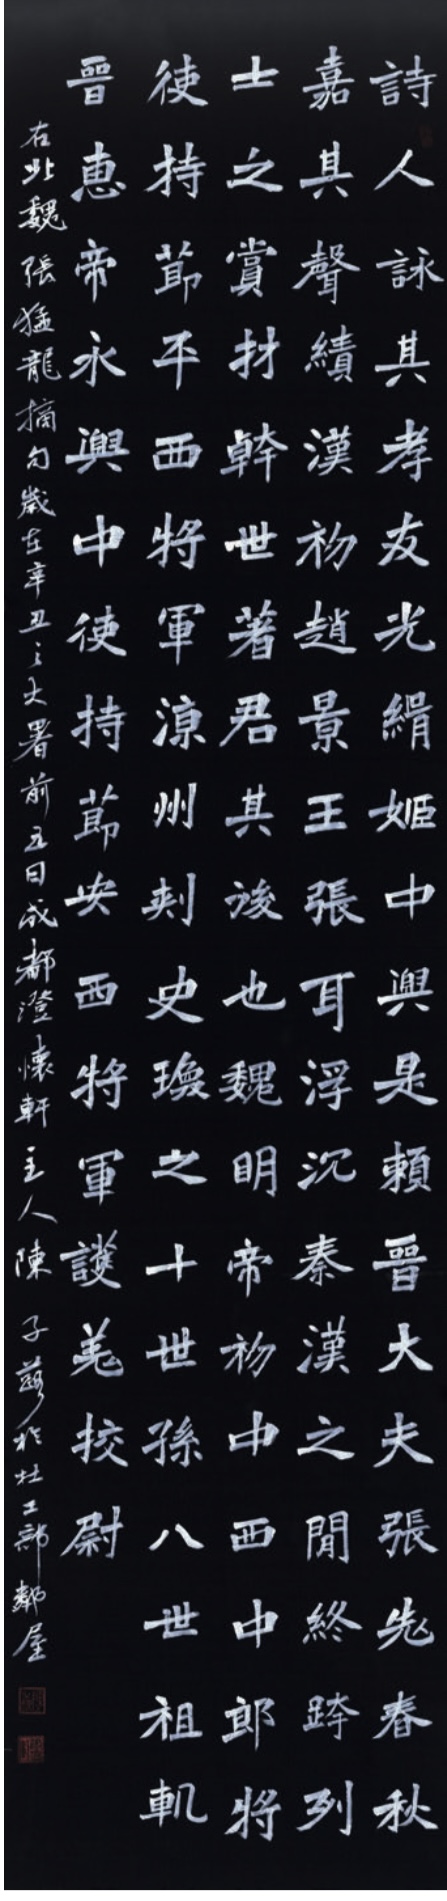 詩人詠其孝友光緝姬中興是賴晉大夫張老春秋
嘉其聲績漢初趙景王張耳浮沉秦漢之間終跨列
士之賞材幹世著君其後也魏明帝初中西中郎將
使持莭平西將軍涼州刺史瑍之十世孫八世祖軌
晉惠帝永興中使持莭安西將軍護羌挍尉
右北魏張猛龍摘句歲在辛丑之大署前五日成都澄懷軒主人陳子於杜工部鄰屋